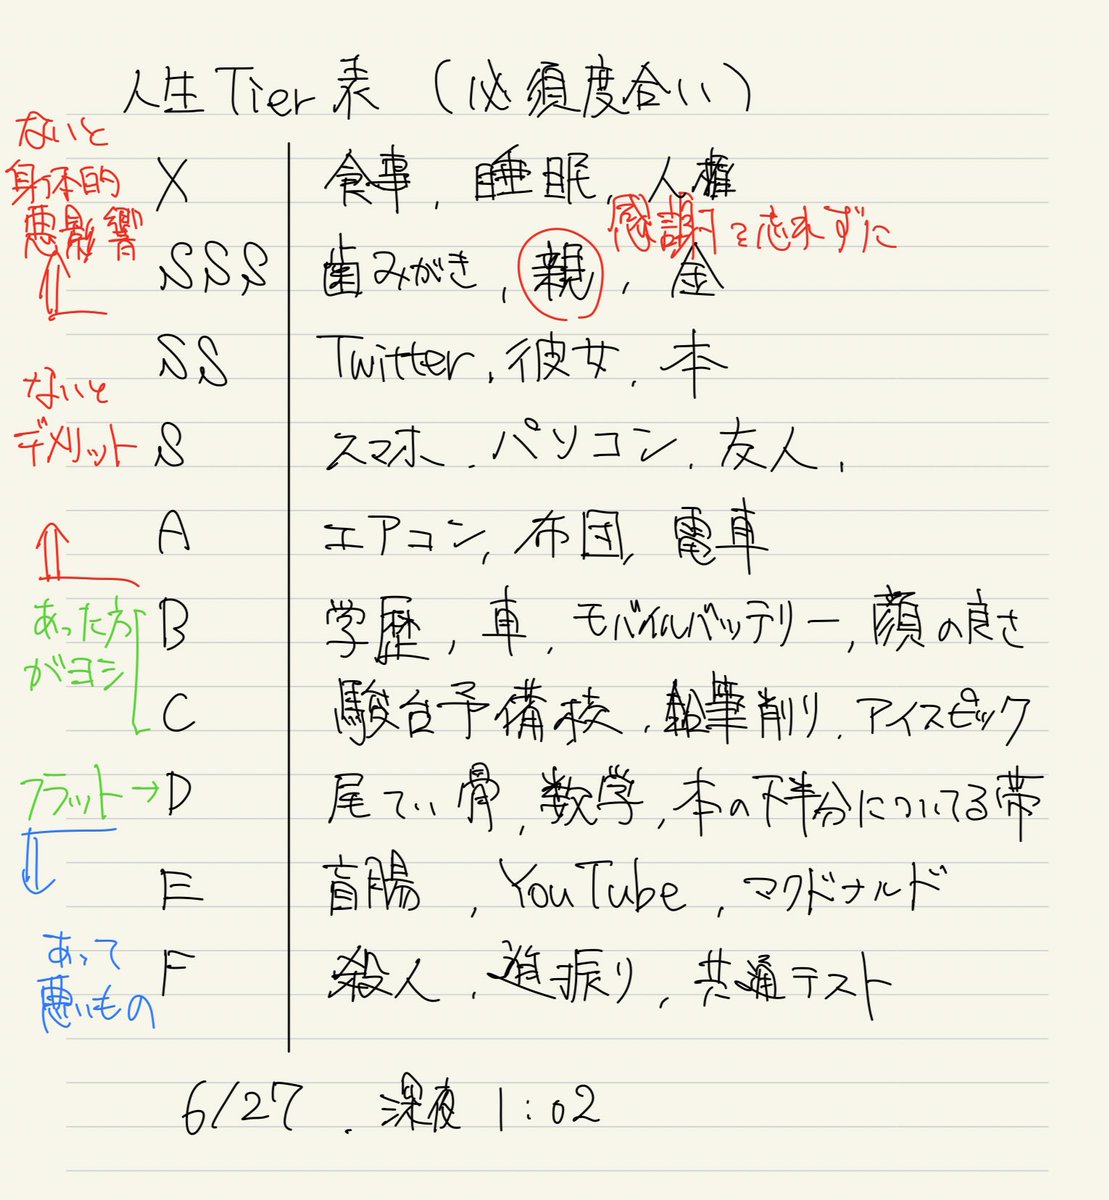 人生Tier表 (必須度合い)
ないと
身体的
悪影響
X 食事, 睡眠, 人権
感謝を忘れずに
SSS 歯みがき, 親, 金
SS Twitter, 彼女, 本
ないと
デメリット
S スマホ, パソコン, 友人,
A エアコン, 布団, 電車
あった方
がヨシ
B 学歴, 車, モバイルバッテリー, 顔の良さ
C 駿台予備校, 鉛筆削り, アイスピック
フラット→D 尾てい骨, 数学, 本の下半分についてる帯
E 盲腸, YouTube, マクドナルド
あって
悪いもの
F 殺人, 逆振り, 共通テスト
6/27, 深夜 1:02